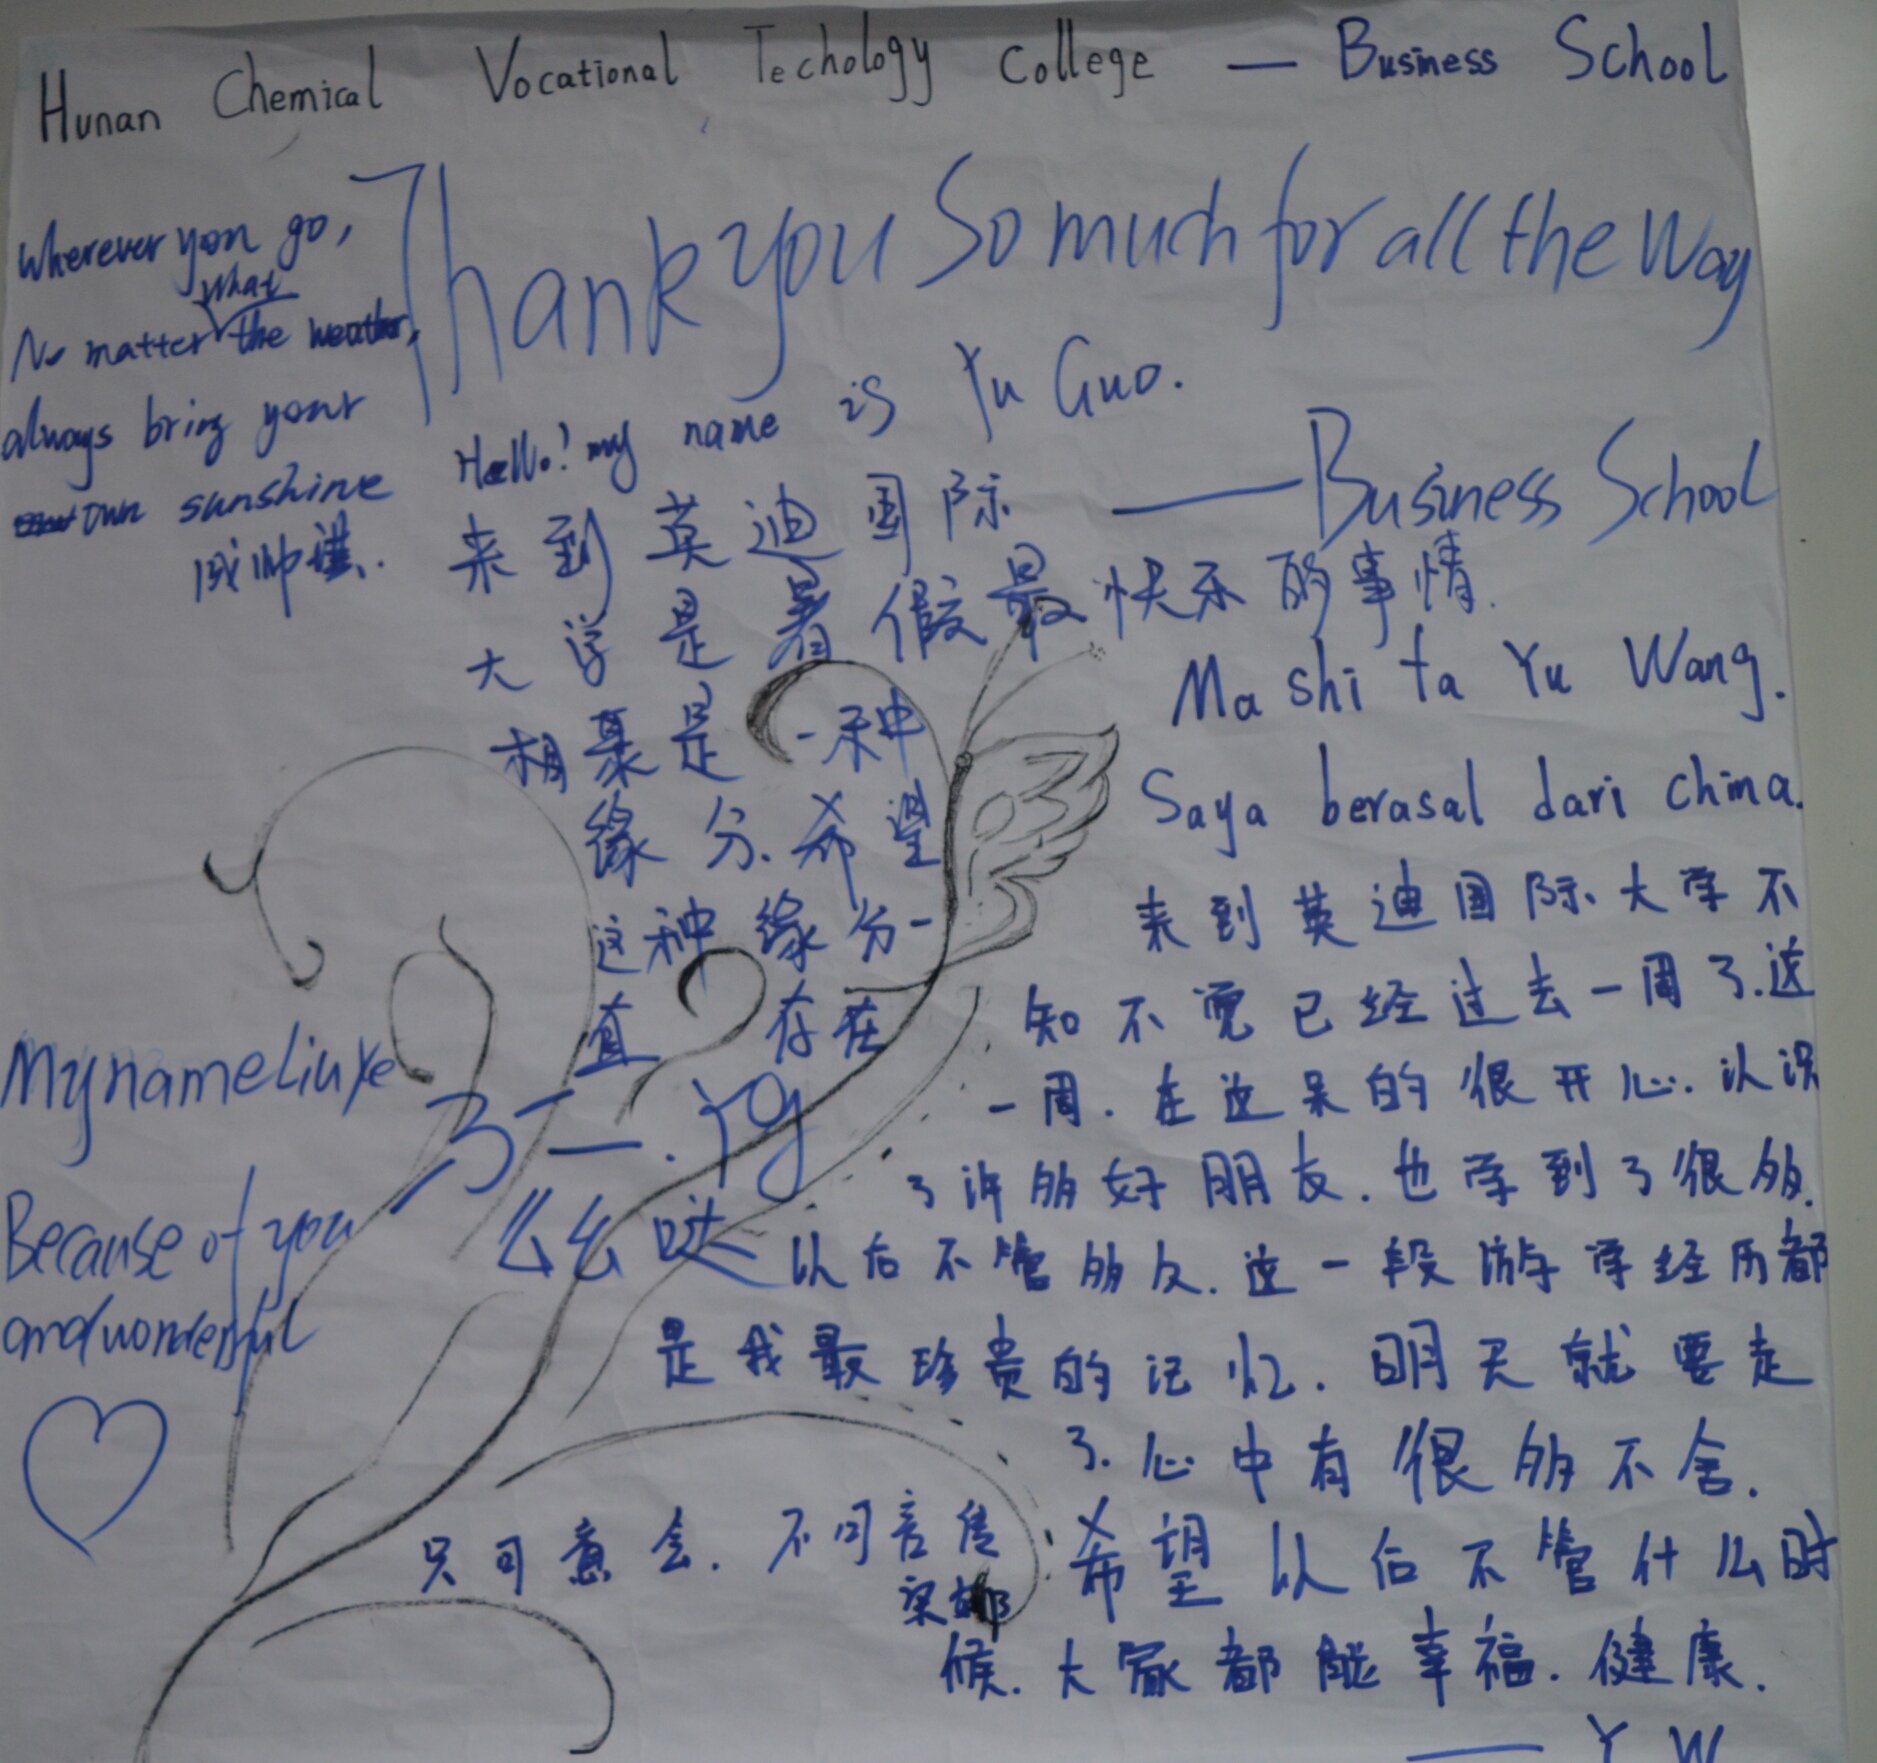 Hunan Chemical Vocational Techology College — Business School
Thank you So much for all the Way
— Business School
Wherever you go,
No matter what the weather,
always bring your
own sunshine
Hello! my name is Yu Guo.
来到英迪国际
大学是暑假最快乐的事情.
相聚是一种
缘分.希望
这种缘分一
直存在
Ma shi ta Yu Wang.
Saya berasal dari china.
来到英迪国际大学不
知不觉已经过去一周了.这
一周.在这呆的很开心.认识
了许多好朋友.也学到了很多.
以后不管多久.这一段游学经历都
是我最珍贵的记忆.明天就要走
了.心中有很多不舍.
希望以后不管什么时
候.大家都能幸福.健康.
— Y W
My name Liu Ye
Because of you
and wonderful
么么哒
只可意会.不可言传